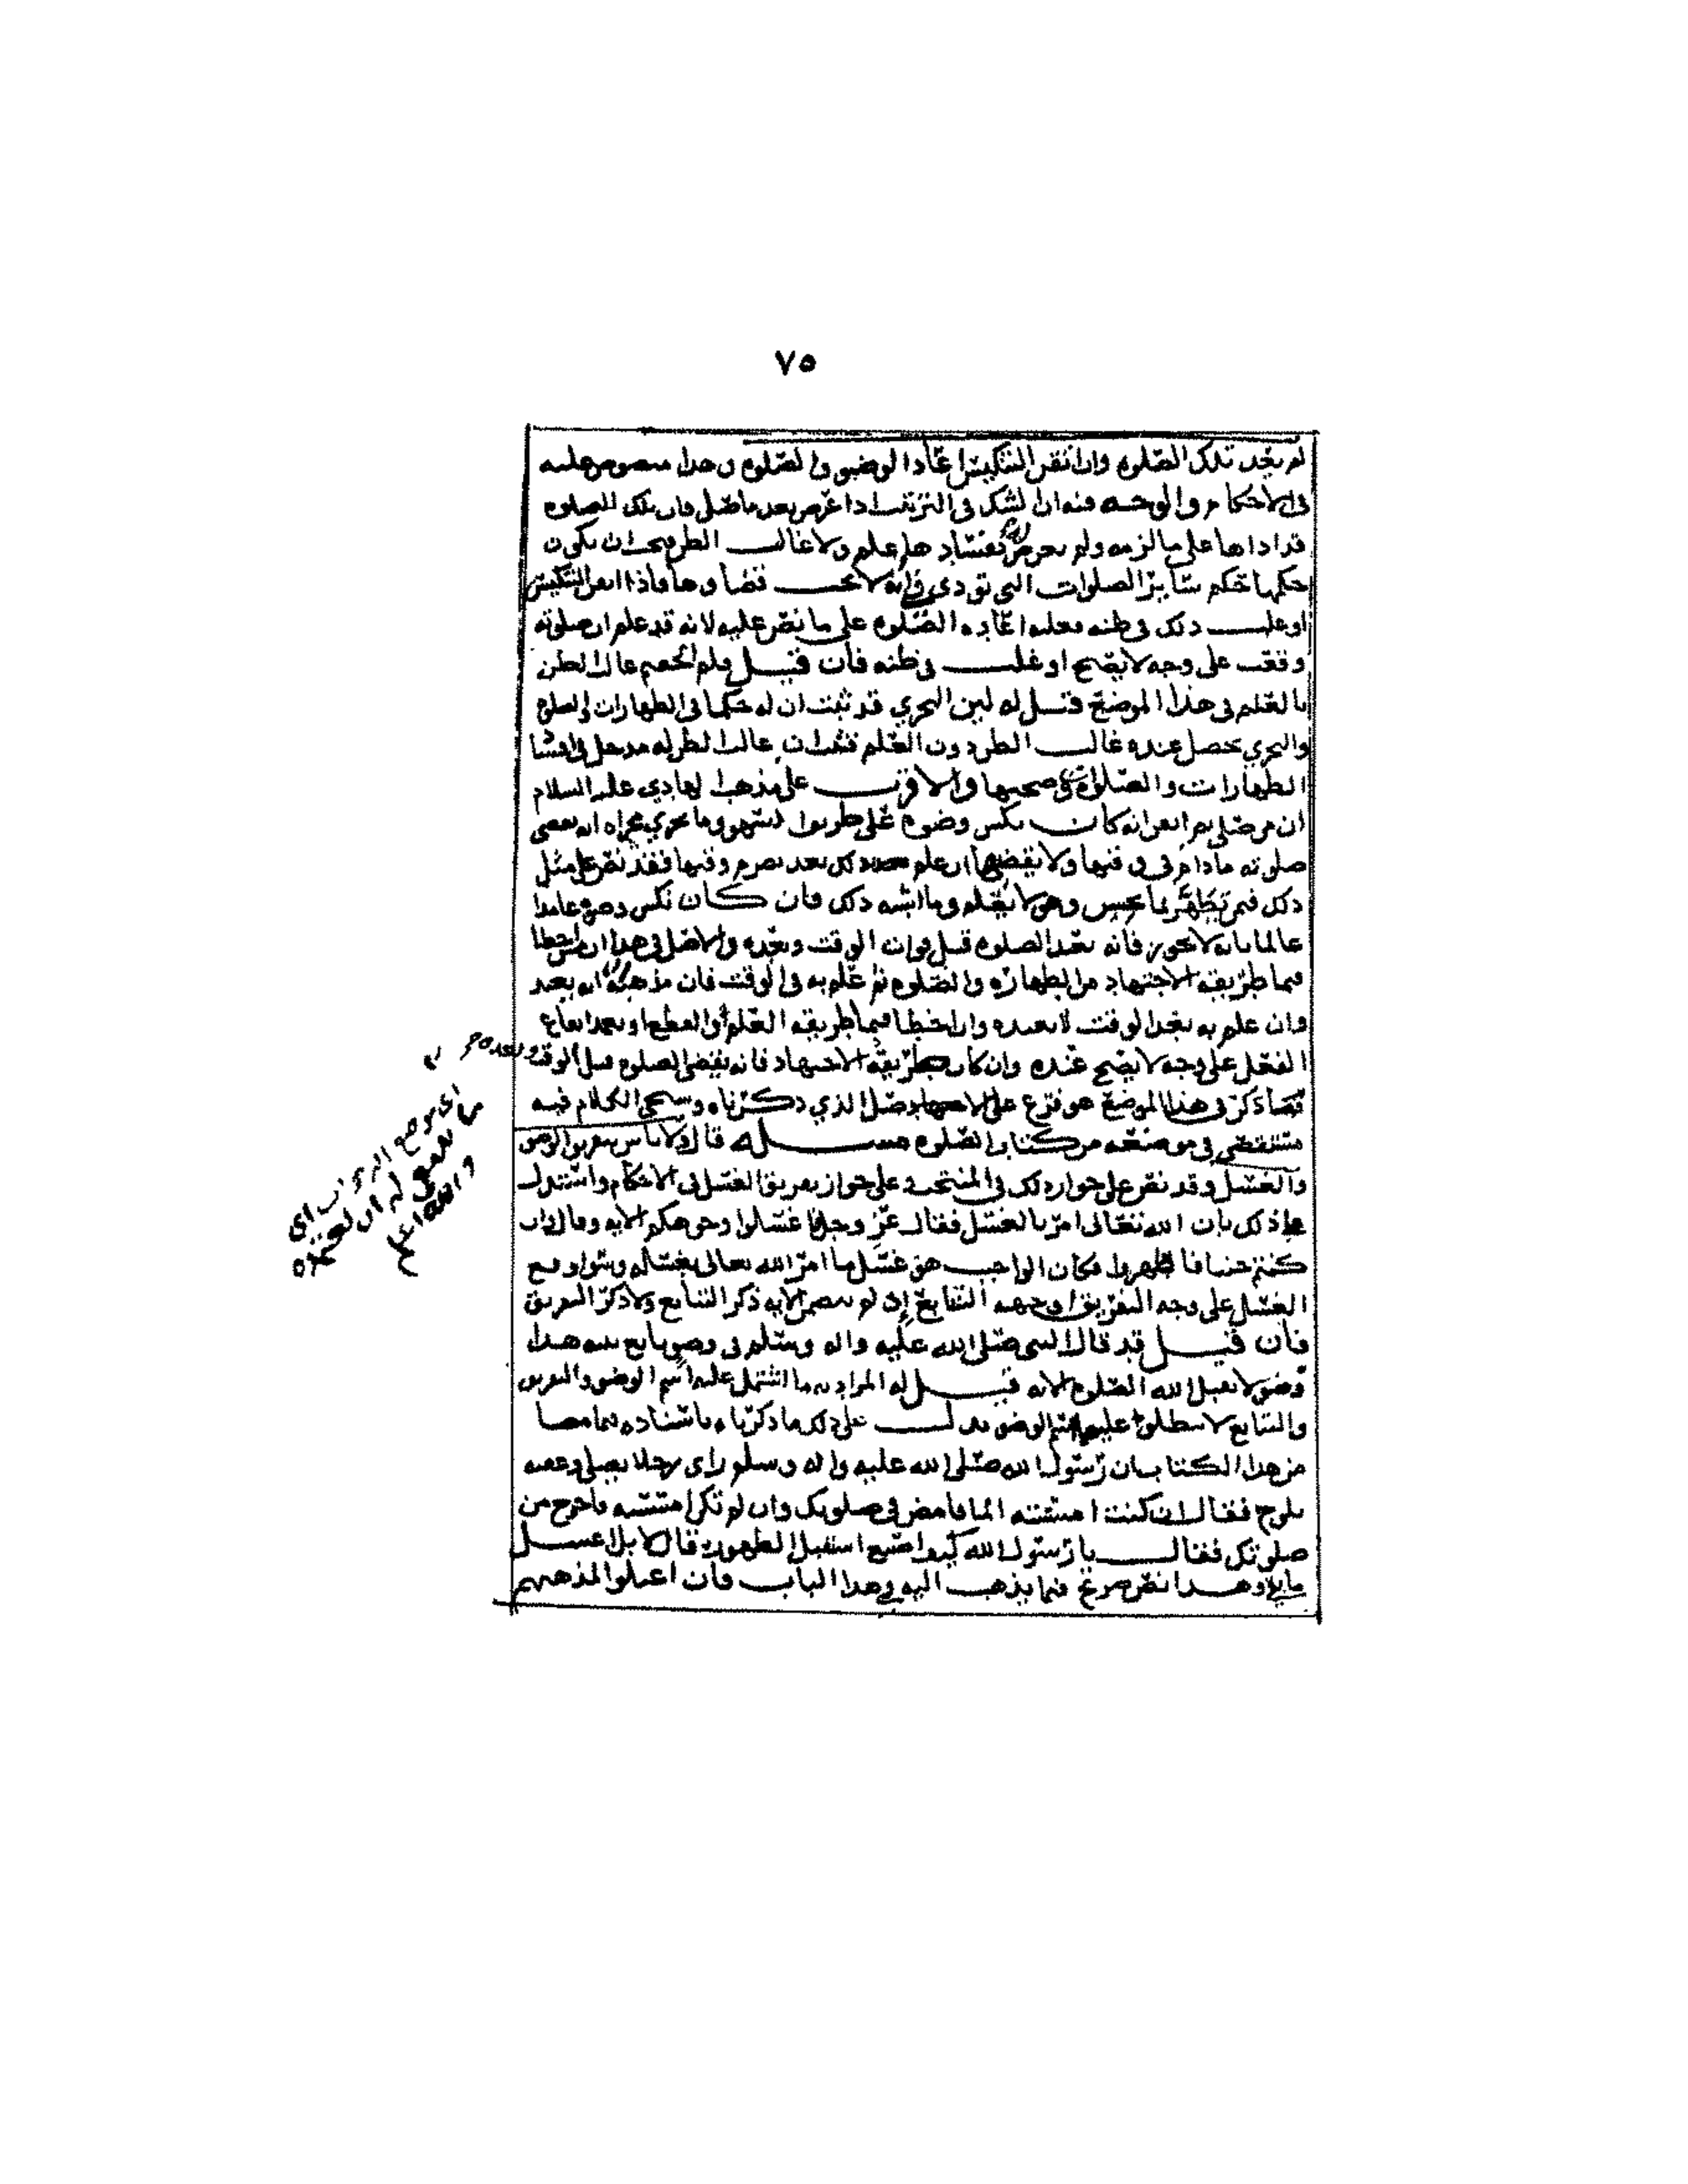 ٧٥
لم يعد تلك الصلوة وان ايقن التنكيس اعاد الوضو والصلوة وهذا منصوص عليه
في الاحكام والوجه فيه ان الشك في الترتيب اذا عرض بعد ما صلى فان تلك الصلوة
قد اداها على ما لزمه ولم يعرض له فساد ها علم ولا غالب الظن فيجب ان يكون
حكمها حكم سائر الصلوات التي تودى في انه لا يجب قضاوها فاذا ايقن التنكيس
او غلب ذلك في ظنه فعليه اعادة الصلوة على ما نص عليه لانه قد علم ان صلوته
وقعت على وجه لا يصح او غلب في ظنه فان قيل ولم الحقتم غالب الظن
بالعلم في هذا الموضع قيل له لان التحري قد ثبت ان له حكما في الطهارات والصلوة
والتحري يحصل عنده غالب الظن دون العلم فثبت ان غالب الظن له مدخل في افساد
الطهارات والصلوات وفي صحتها والاقرب على مذهب الهادي عليه السلام
ان من صلى ثم ايقن انه كان نكس وضوه على طريق السهو وما يجري مجراه انه يقضي
صلوته مادام في وقتها ولا يقضيها ان علم ذلك بعد تصرم وقتها فقد نص على مثل
ذلك فيمن تطهر بما نجس وهو لا يعلم وما اشبه ذلك فان كان نكس وضوه عامدا
عالما بانه لا يجوز فانه يعيد الصلوة قبل فوات الوقت وبعده والاصل في هذا ان من اخطا
فيما طريقه الاجتهاد من الطهارة والصلوة ثم علم به في الوقت فان مذهبه انه يعيد
وان علم به بعد الوقت لا يعيده وان اخطا فيما طريقه العلم او القطع او تعمد ايقاع
الفعل على وجه لا يصح عنده وان كان طريقة الاجتهاد فانه يقضي الصلوة قبل الوقت وبعده
فما ذكر في هذا الموضع هو فرع على الاصل الذي ذكرناه وسيجي الكلام فيه
مستقصى في موضعه من كتاب الصلوة مسله قال ولا باس بتفريق الوضو
والغسل وقد نص على جواز ذلك في المنتخب وعلى جواز تفريق الغسل في الاحكام واستدل
على ذلك بان الله تعالى امر بالغسل فقال عز وجل فاغسلوا وجوهكم الايه وقال وان
كنتم جنبا فاطهروا فكان الواجب هو غسل ما امر الله تعالى بغسله وسوا وقع
الغسل على وجه التفريق او جهه التتابع اذ لم يتضمن الايه ذكر التتابع ولا ذكر التفريق
فان قيل قد قال النبي صلى الله عليه واله وسلم في وضو تابع بينه هذا
وضو لا يقبل الله الصلوة الا به قيل له المراد به ما اشتمل عليه اسم الوضو والتفريق
والتتابع لا ينطلق عليهما اسم الوضو يدل على ذلك ما ذكرناه باسناده فيما مضى
من هذا الكتاب ان رسول الله صلى الله عليه واله وسلم راى رجلا يصلي وعقبه
يلوح فقال ان كنت امسسته الما فامض في صلوتك وان لم تكن امسسته فاخرج من
صلوتك فقال يا رسول الله كيف اصنع استقبل الطهور قال لا بل اغسل
ما بقي وهذا نص صريح فيما يذهب اليه في هذا الباب فان اعلوا لمذهبهم
والله اعلم